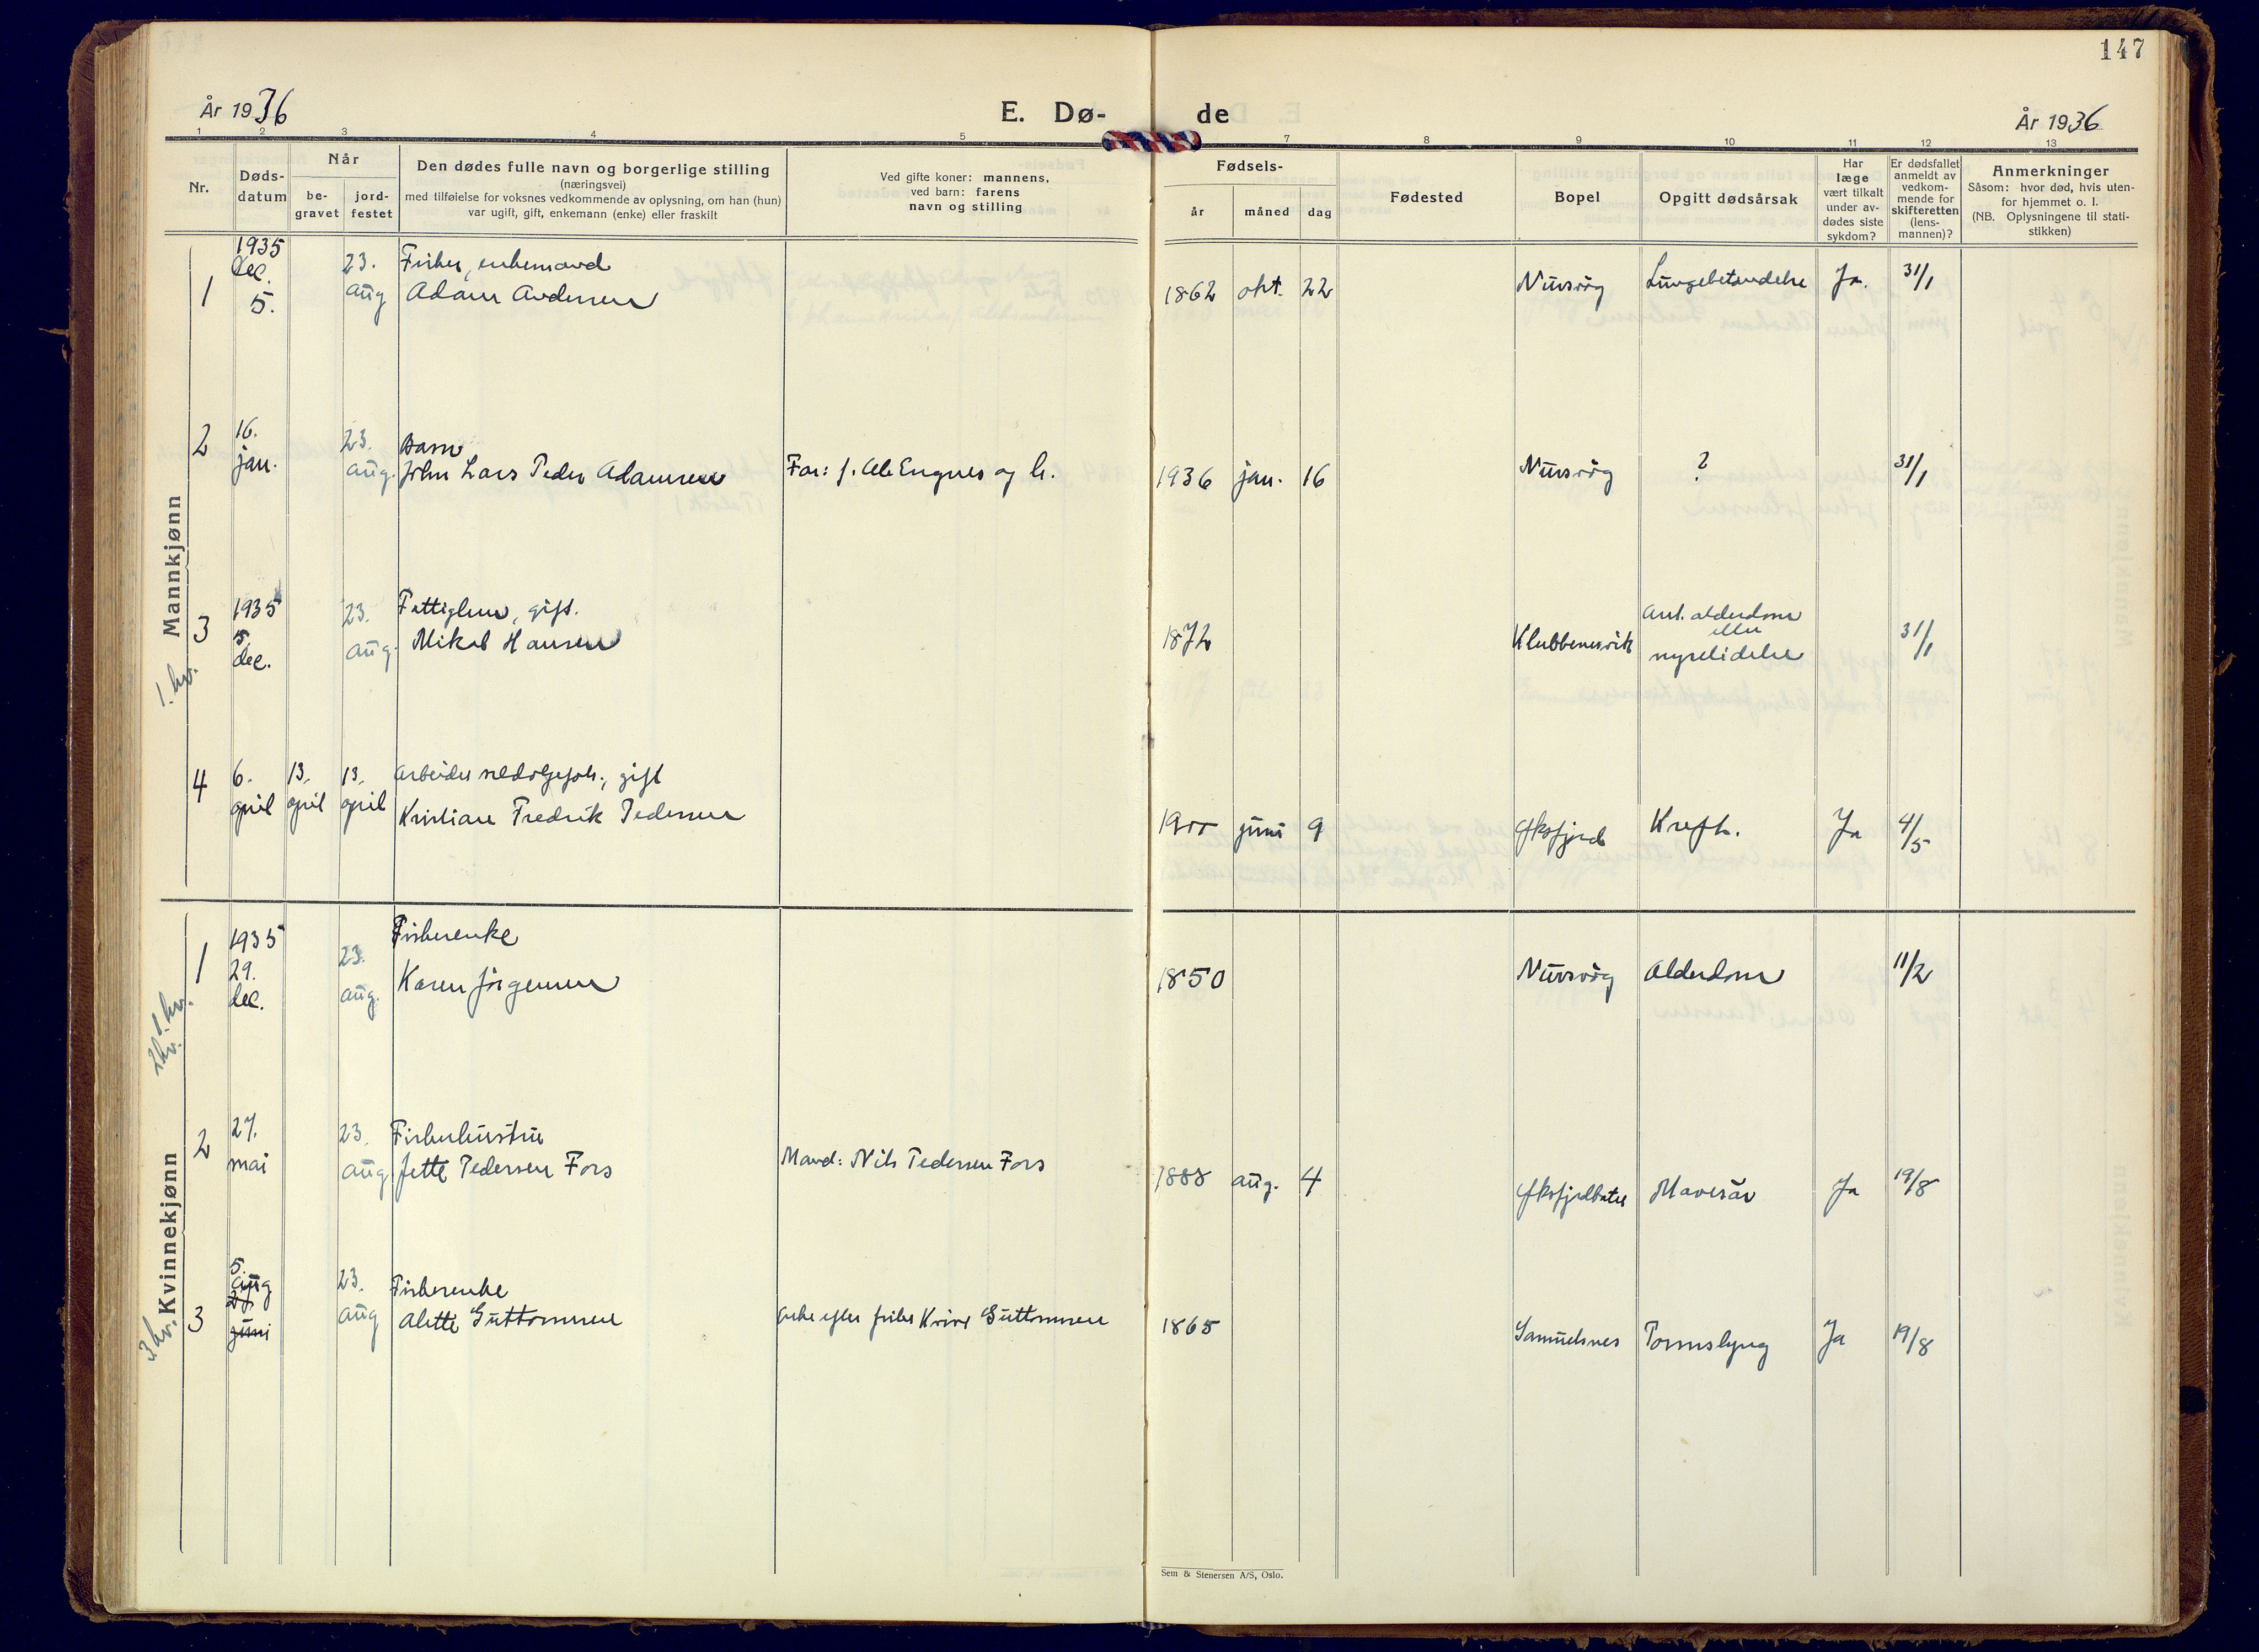 147
År 1936
E. Dø-
de
År 1936
1 2 3 4 5 7 8 9 10 11 12 13
Nr.
Døds-
datum
Når
be-
gravet
jord-
festet
Den dødes fulle navn og borgerlige stilling
(næringsvei)
med tilføielse for voksnes vedkommende av oplysning, om han (hun)
var ugift, gift, enkemann (enke) eller fraskilt
Ved gifte koner: mannens,
ved barn: farens
navn og stilling
Fødsels-
år måned dag
Fødested
Bopel
Opgitt dødsårsak
Har
læge
vært tilkalt
under av-
dødes siste
sykdom?
Er dødsfallet
anmeldt av
vedkom-
mende for
skifteretten
(lens-
mannen)?
Anmerkninger
Såsom: hvor død, hvis uten-
for hjemmet o. l.
(NB. Oplysningene til stati-
stikken)
Mannkjønn
1. kv.
1
1935
dec.
5.
23.
aug
Fisker, enkemand
Adam Andersen
1862 okt. 22
Nuvsvåg
Lungebetændelse
Ja.
31/1
2
16.
jan.
23.
aug.
Barn
John Lars Peder Adamsen
Far: f. Ole Engnes og h.
1936 jan. 16
Nuvsvåg
?
31/1
3
1935
5.
dec.
23.
aug.
Fattiglem, gift.
Mikal Hansen
1872
Klubbenesvik
Ant. alderdom
eller
nyrelidelse
31/1
4
6.
april
13.
april
13.
april
Arbeider gift
Kristian Fredrik Pedersen
1900 juni 9
Øksfjord
Kreft.
Ja
4/5
Kvinnekjønn
1. kv.
2 kv.
3 kv.
1
1935
29.
dec.
23.
aug.
Fiskerenke
Karen Jørgensen
1850
Nuvsvåg
Alderdom
11/2
2
27.
mai
23.
aug
Fiskerhustru
Jette Pedersen Fors
Mand: Nils Pedersen Fors
1888 aug. 4
Øksfjordbotn
Mavesår
Ja
19/8
3
5.
aug
juni
23.
aug
Fiskerenke
Alette Guttormsen
Enke efter fisker Guttormsen
1865
Samuelsnes
Tarmslyng
Ja
19/8
Sem & Stenersen A/S, Oslo.